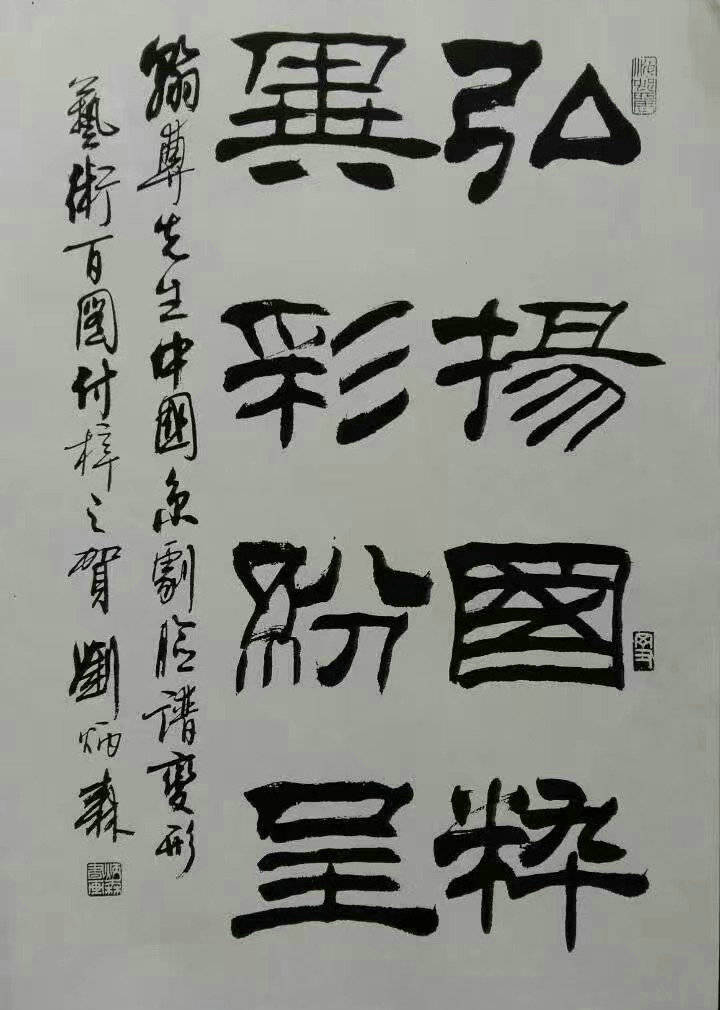 弘揚國粹
異彩紛呈
翁尊先生中國京劇臉譜變形
藝術百圖付梓之賀 劉炳森